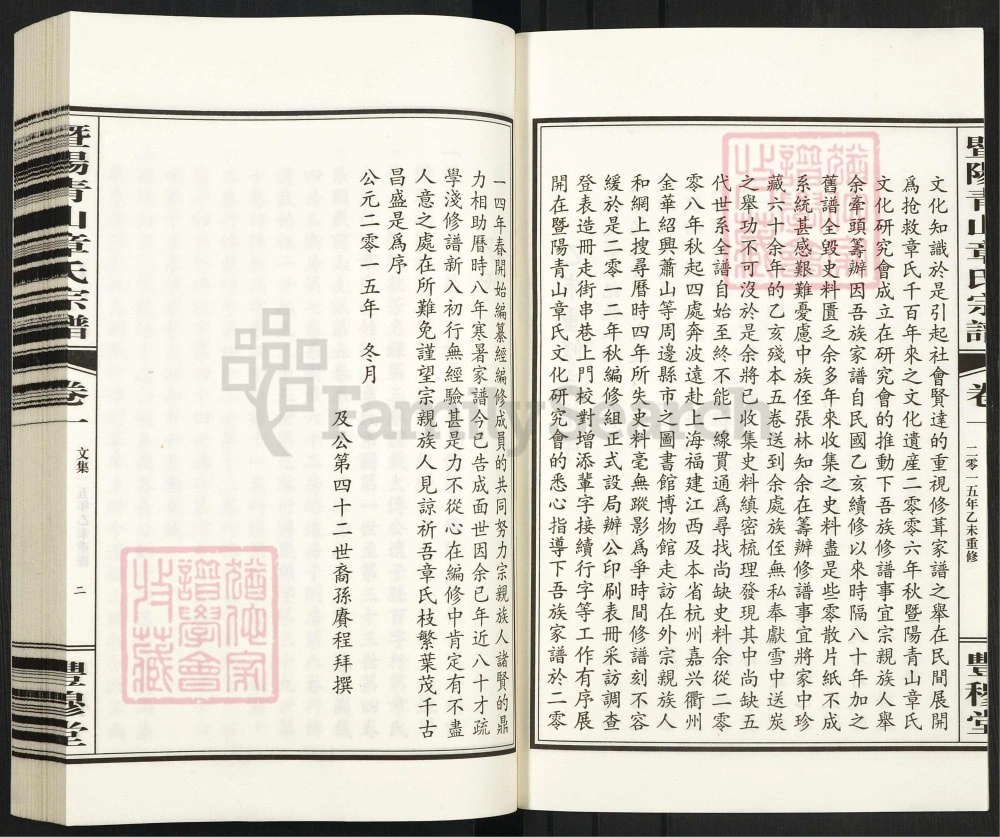 暨陽青山章氏宗譜
卷一
二零一五年乙未重修
豐穆堂
文化知識於是引起社會賢達的重視修葺家譜之舉在民間展開
爲搶救章氏千百年來之文化遺産二零零六年秋暨陽青山章氏
文化研究會成立在研究會的推動下吾族修譜事宜宗親族人舉
余牽頭籌辦因吾族家譜自民國乙亥續修以來時隔八十年加之
舊譜全毁史料匱乏余多年來收集之史料盡是些零散片紙不成
系統甚感艱難憂慮中族侄張林知余在籌辦修譜事宜將家中珍
藏六十余年的乙亥殘本五卷送到余處族侄無私奉獻雪中送炭
之舉功不可沒於是余將已收集史料縝密梳理發現其中尚缺五
代世系全譜自始至終不能一線貫通爲尋找尚缺史料余從二零
零八年秋起四處奔波遠赴上海福建江西及本省杭州嘉兴衢州
金華紹興蕭山等周邊縣市之圖書館博物館走訪在外宗親族人
和網上搜尋曆時四年所失史料毫無蹤影爲爭時間修譜刻不容
緩於是二零一二年秋編修組正式設局辦公印刷表冊采訪調查
登表造冊走街串巷上門校對增添輩字接續行字等工作有序展
開在暨陽青山章氏文化研究會的悉心指導下吾族家譜於二零
一四年春開始編纂經編修成員的共同努力宗親族人諸賢的鼎
力相助曆時八年寒暑家譜今已告成面世因余已年近八十才疏
學淺修譜新入初行無經驗甚是力不從心在編修中肯定有不盡
人意之處在所難免謹望宗親族人見諒祈吾章氏枝繁葉茂千古
昌盛是爲序
公元二零一五年 冬月
及公第四十二世裔孫賡程拜撰
暨陽青山章氏宗譜
卷一
文集
二
豐穆堂
FamilySearch